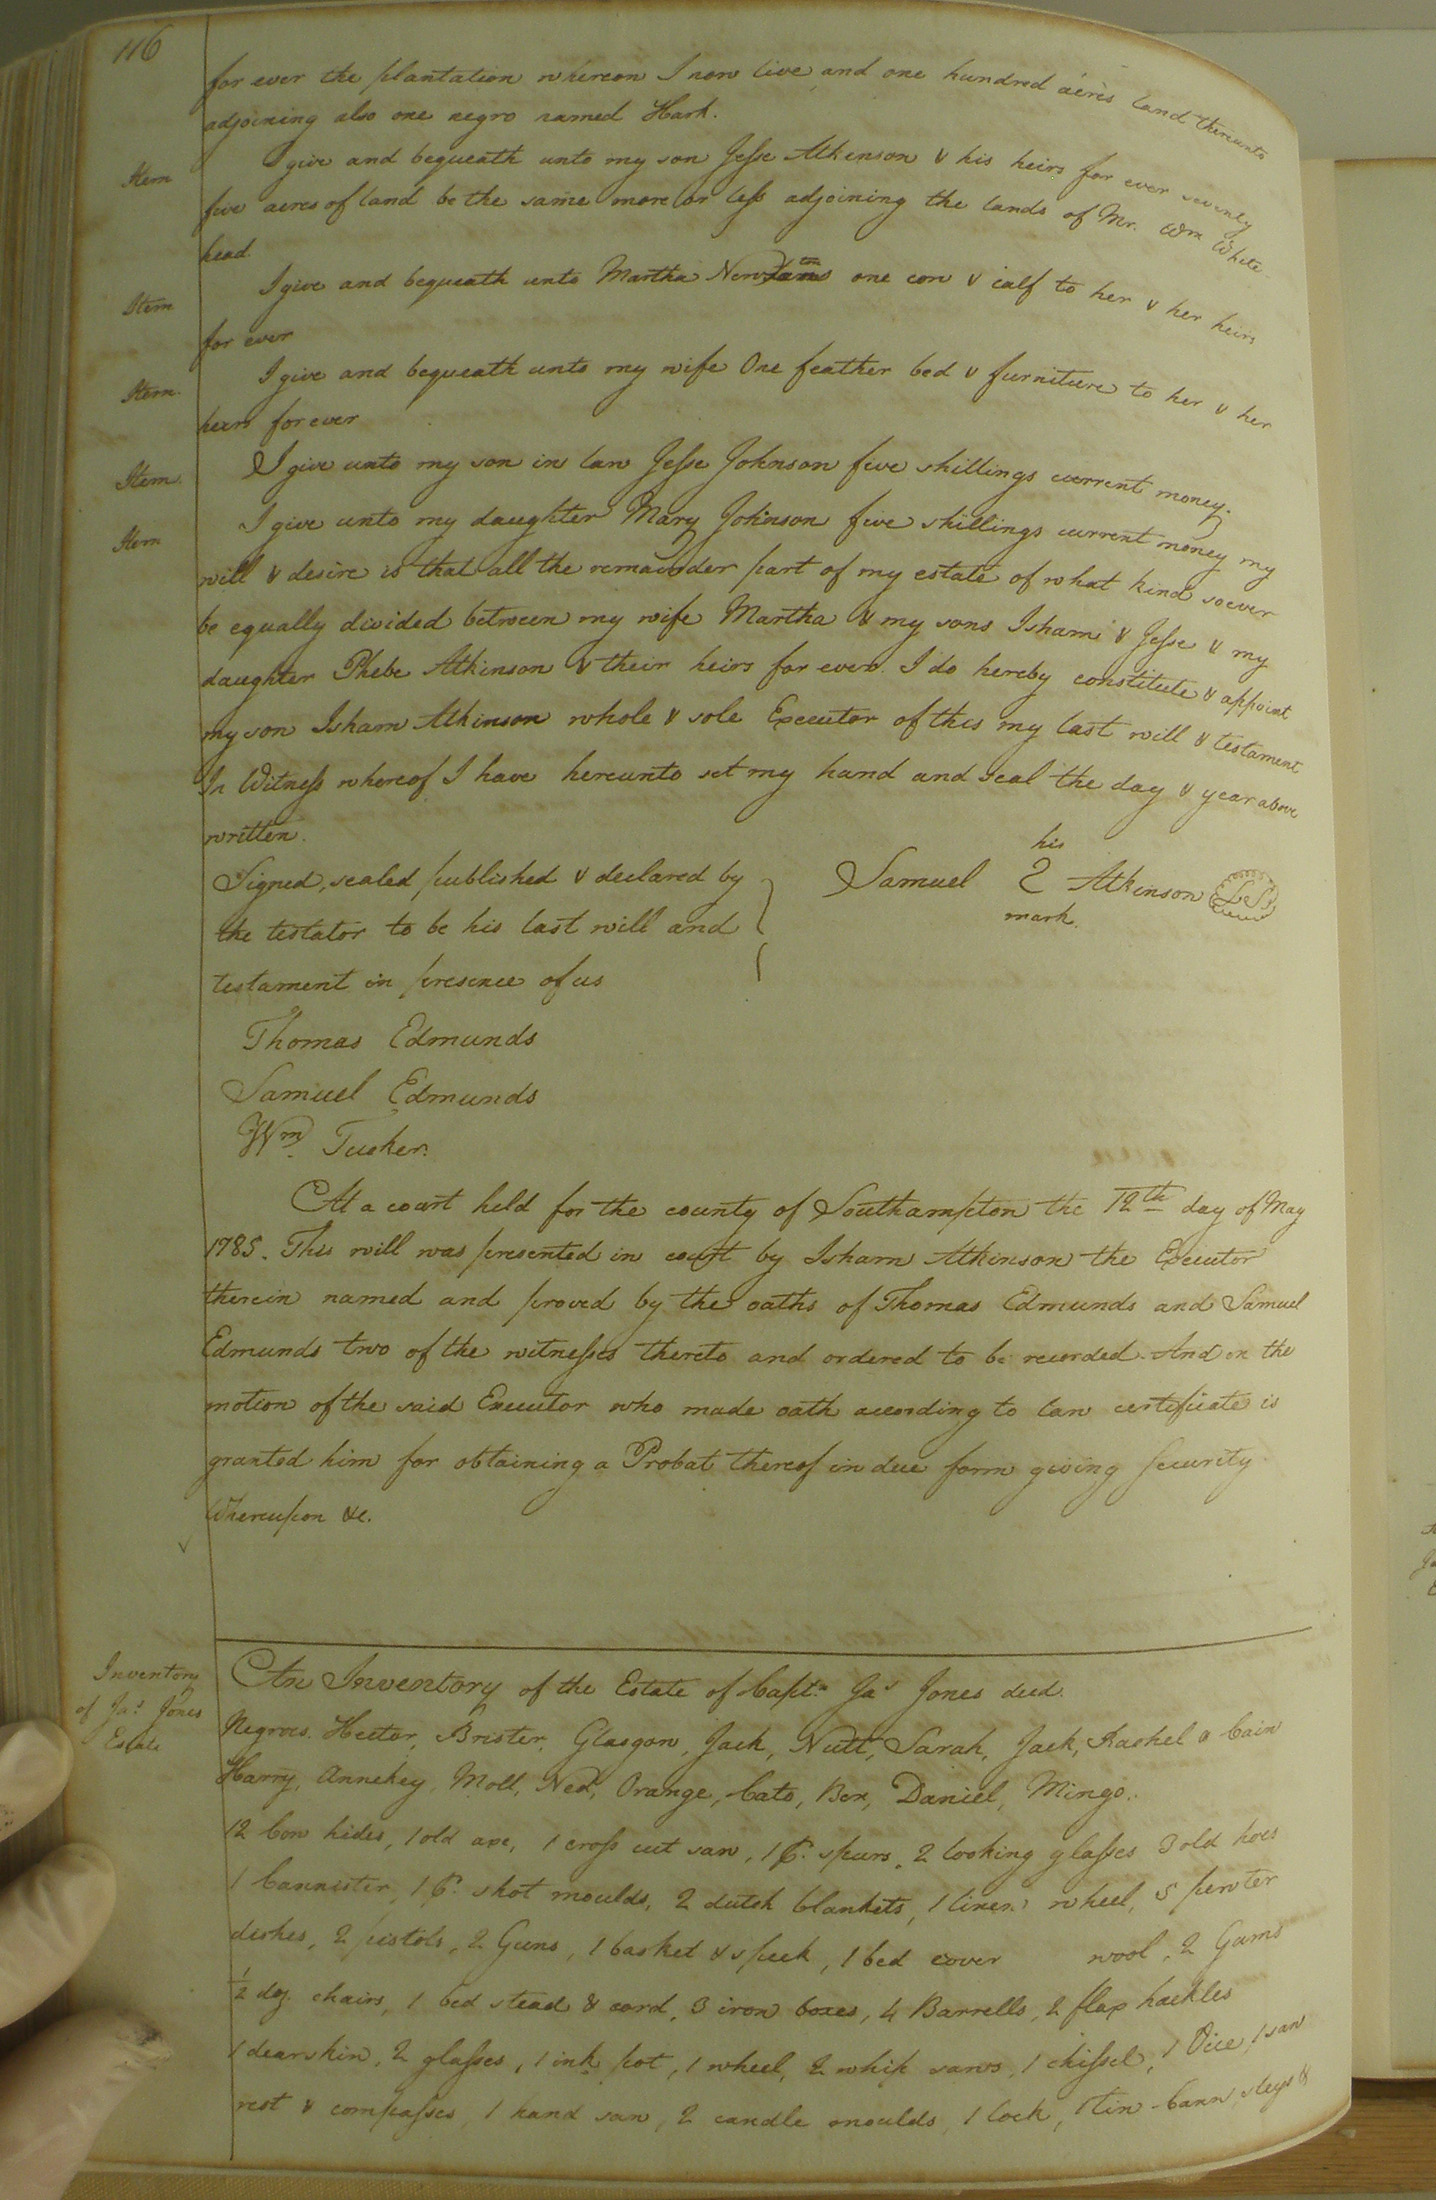 116
for ever the plantation whereon I now live and one hundred acres land thereunto
adjoining also one negro named Hark.
Item I give and bequeath unto my son Jesse Atkinson & his heirs for ever seventy
five acres of land be the same more or less adjoining the lands of Mr. Wm White
head.
Item I give and bequeath unto Martha one cow & calf to her & her heirs
for ever
Item. I give and bequeath unto my wife One feather bed & furniture to her & her
heirs forever
Item. I give unto my son in law Jesse Johnson five shillings current money.
Item I give unto my daughter Mary Johnson five shillings current money my
will & desire is that all the remainder part of my estate of what kind soever
be equally divided between my wife Martha & my sons Isham & Jesse & my
daughter Phebe Atkinson & their heirs for ever. I do hereby constitute & appoint
my son Isham Atkinson whole & sole Executor of this my last will & testament
In Witness whereof I have hereunto set my hand and seal the day & year above
written.
his
Signed, sealed published & declared by Samuel 2 Atkinson LS
mark.
the testator to be his last will and
testament in presence of us
Thomas Edmunds
Samuel Edmunds
Wm. Tucker.
At a court held for the county of Southampton the 12th day of May
1785. This will was presented in court by Isham Atkinson the Executor
therein named and proved by the oaths of Thomas Edmunds and Samuel
Edmunds two of the witnesses thereto and ordered to be recorded. And on the
motion of the said Executor who made oath according to law certificate is
granted him for obtaining a Probat thereof in due form giving security
Whereupon &c.
Inventory
of Jas. Jones
Estate
An Inventory of the Estate of Capt. Jas Jones decd.
Negroes. Hector, Brister, Glasgow, Jack, Nutt, Sarah, Jack, Rachel & Cain
Harry, Annekey, Moll, Ned, Orange, Cato, Ben, Daniel, Mingo.
12 Cow hides, 1 old axe, 1 cross cut saw, 1 pr. spurs, 2 looking glasses 3 old hoes
1 Cannister, 1 pr. shot moulds, 2 dutch blankets, 1 linen wheel, 5 pewter
dishes, 2 pistols, 2 Guns, 1 basket & peck, 1 bed cover wool, 2 Gums
½ doz. chairs, 1 bed stead & cord, 3 iron boxes, 4 Barrells, 2 flax hackles
1 dearskin, 2 glasses, 1 ink pot, 1 wheel, 2 whip saws, 1 chissel, 1 Vice, 1 saw
rest & compasses, 1 hand saw, 2 candle moulds, 1 lock, 1 tin Cann, sleys &